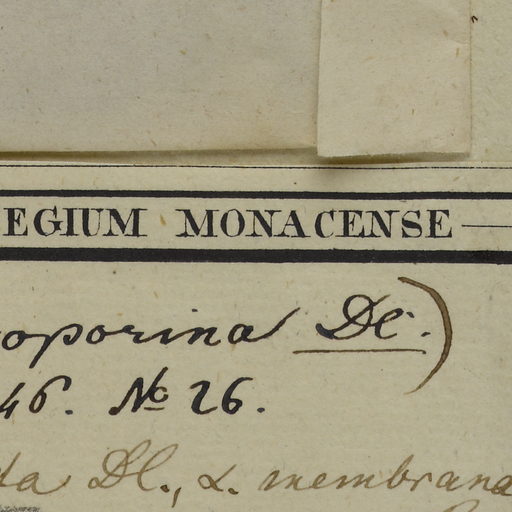 EGIUM MONACENSE
oporina Dl.)
46. No 26.
ta Dl., α. membrana